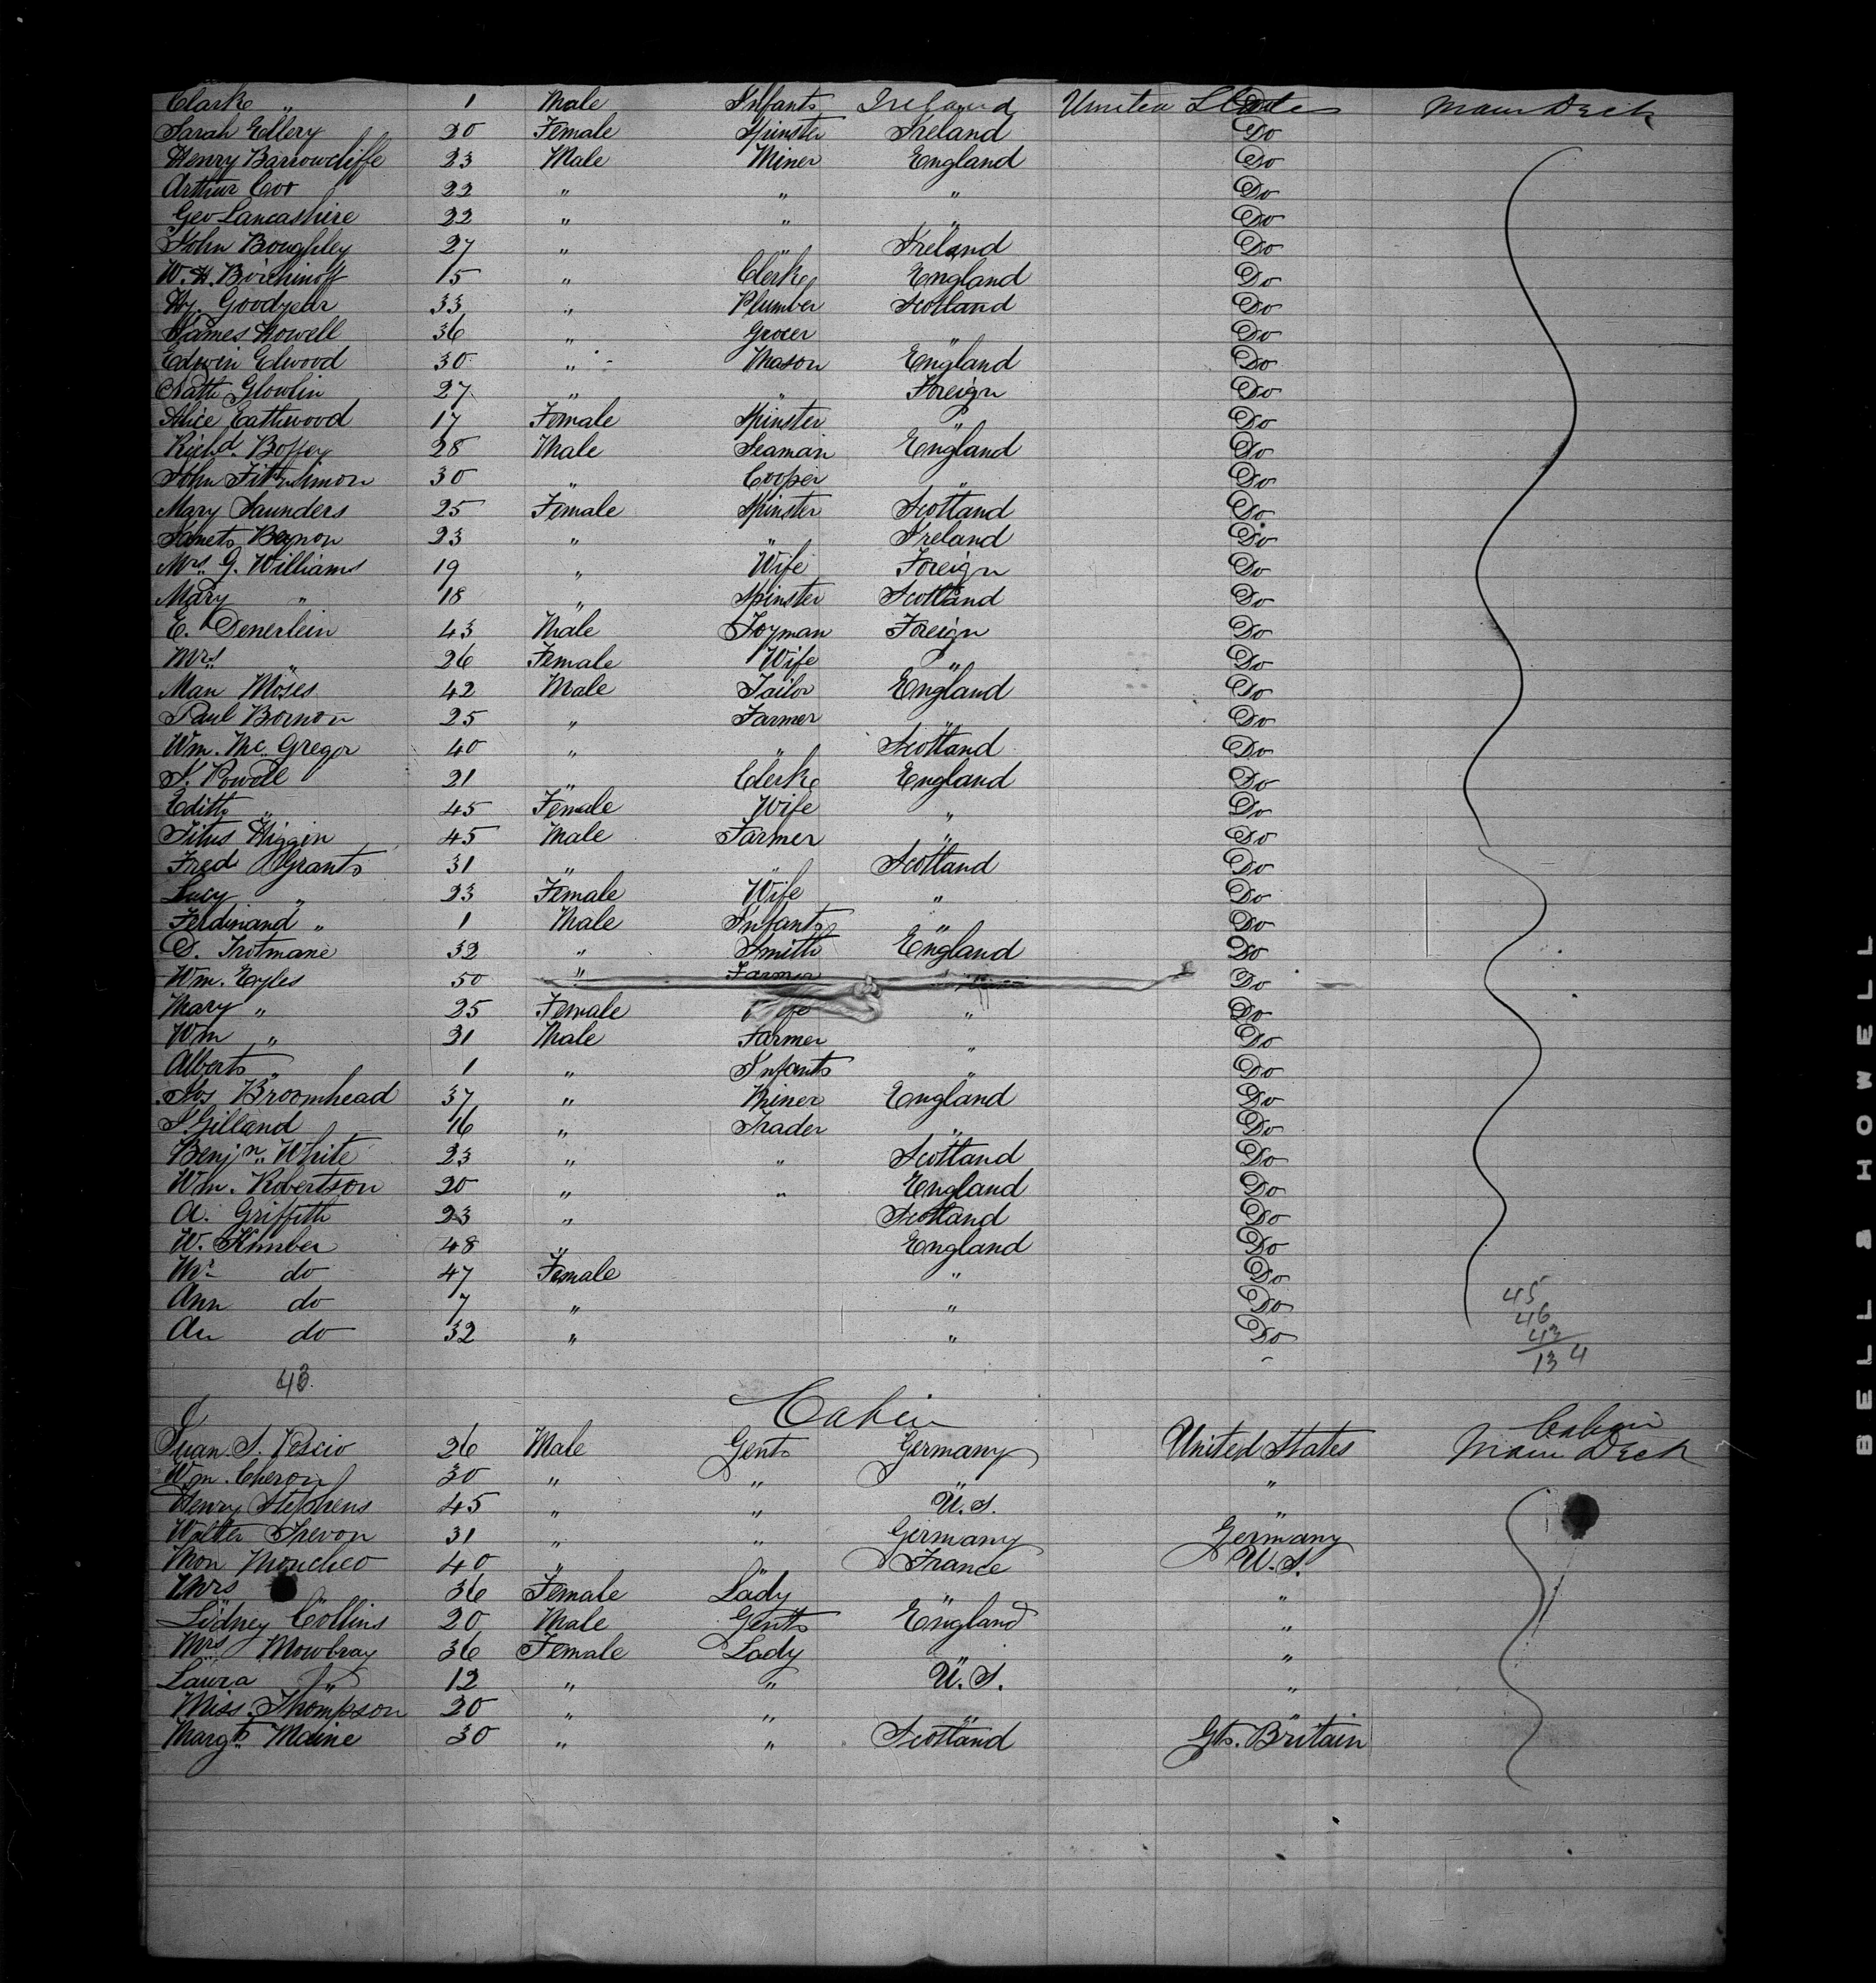 Clarke " 1 Male Infant Ireland United States Main Deck
Sarah Ellery 20 Female Spinster Ireland Do
Henry Barrowcliffe 23 Male Miner England Do
Arthur 22 " " " Do
Geo Lancashire 22 " " " Do
John Boughley 27 " " Ireland Do
W. H. 15 " Clerk England Do
Hy. Goodyear 33 " Plumber Scotland Do
James Howell 36 " Grocer " Do
Edwin Elwood 30 " Mason England Do
Nath Glowlin 27 " " Foreign Do
Alice Eathwood 17 Female Spinster " Do
Richd. Boffey 28 Male Seaman England Do
John Fitzsimon 30 " Cooper " Do
Mary Saunders 25 Female Spinster Scotland Do
Janet 23 " " Ireland Do
Mrs. G. Williams 19 " Wife Foreign Do
Mary " 18 " Spinster Scotland Do
E. Denerlein 43 Male Toyman Foreign Do
Mrs " 26 Female Wife " Do
Man Moses 42 Male Tailor England Do
Paul Bornon 25 " Farmer " Do
Wm. Mc. Gregor 40 " " Scotland Do
S. Powell 21 " Clerk England Do
Edith " 45 Female Wife " Do
Titus Higgin 45 Male Farmer " Do
Fred Grant 31 " " Scotland Do
Lucy " 23 Female Wife " Do
Ferdinand " 1 Male Infant " Do
D. Trotmane 32 " Smith England Do
Wm. Eyles 50 " Farmer Do
Mary " 25 Female " Do
Wm " 21 Male Farmer " Do
Albert " 1 " Infant " Do
Jos Broomhead 37 " Miner England Do
S. Gilland 16 " Trader " Do
Benjn. White 23 " " Scotland Do
Wm. Robertson 20 " " England Do
A. Griffith 23 " Scotland Do
W. Kimber 48 " England Do
Mrs do 47 Female " Do
Ann do 7 " " Do
An do 32 " " Do
45
46
43
134
43.
Cabin
Juan. S. Pescio 26 Male Gent Germany United States Cabin Main Deck
Wm. Cheron 30 " " " "
Henry Stephens 45 " " U. S. "
Walter Trevon 31 " " Germany Germany
Mon Moncheo 40 " " France U. S.
Mrs " 36 Female Lady " "
Sidney Collins 20 Male Gent England "
Mrs Mowbray 36 Female Lady " "
Laura " 12 " " U. S. "
Miss. Thompson 20 " " " "
Margt. Maine 30 " " Scotland Gt. Britain
BELL & HOWELL